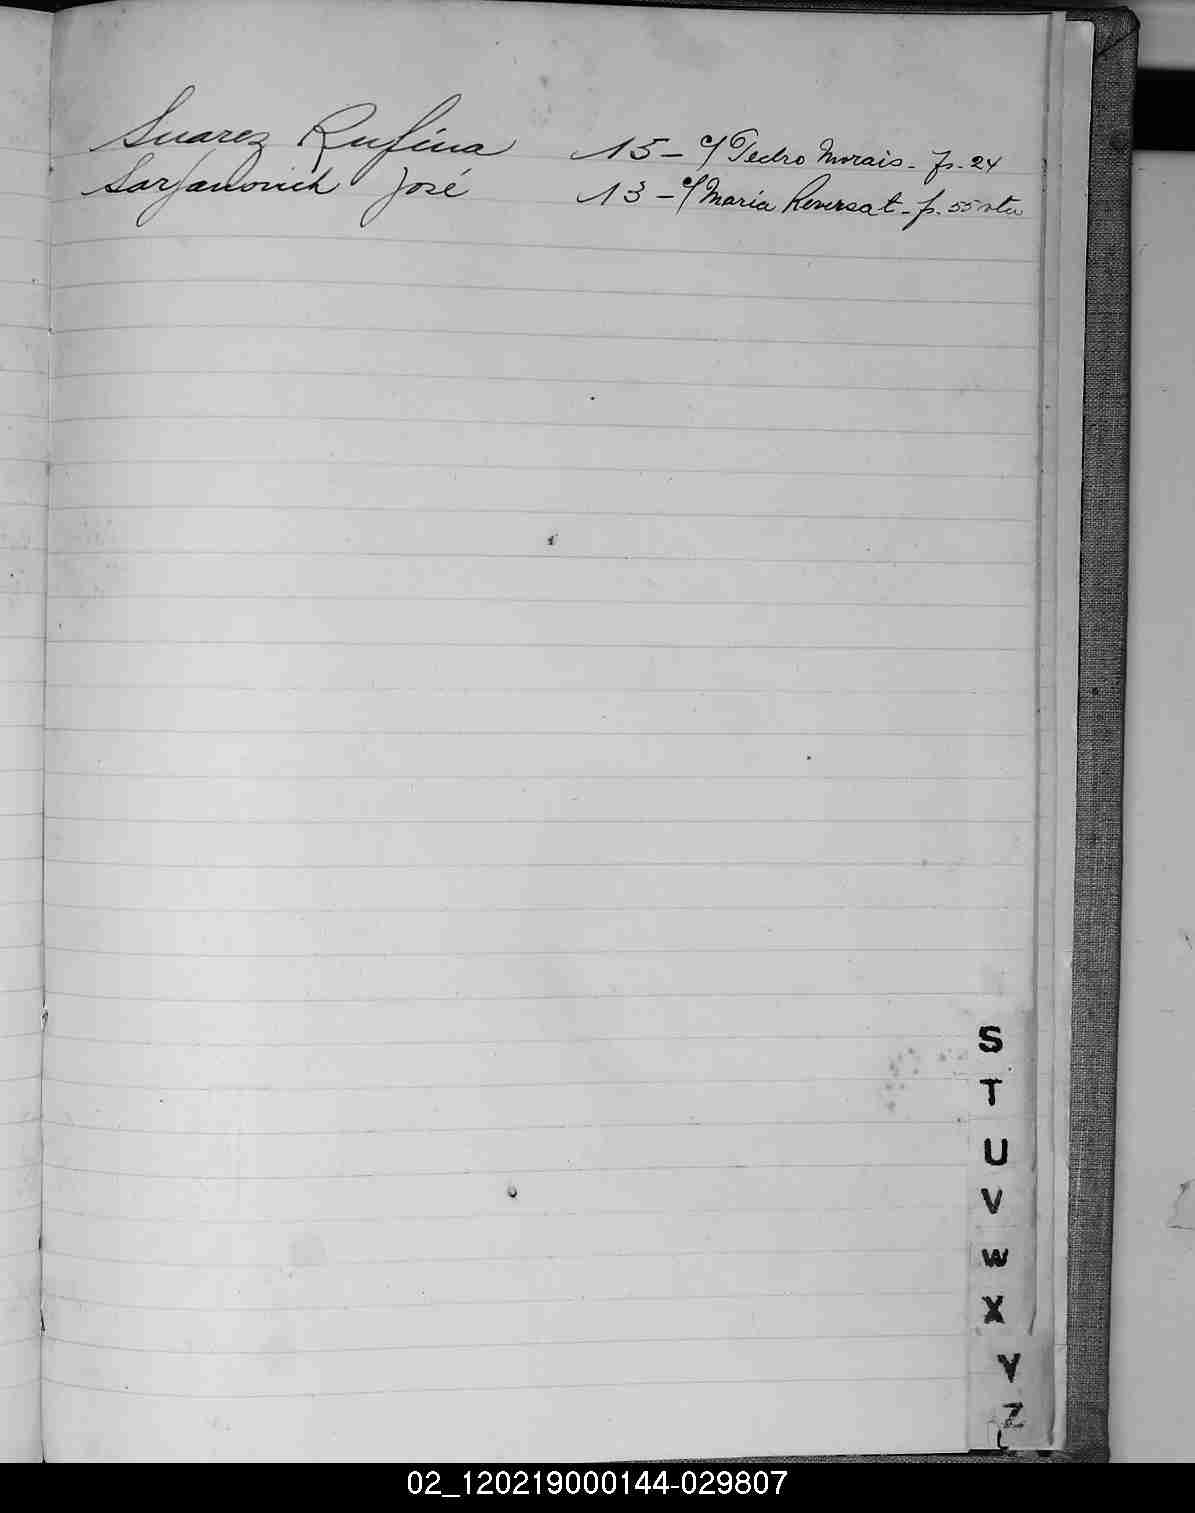 Suarez Rufina 15 - c/ Pedro Morais - fs. 24
Sarjanovich José 13 - c/ Maria Reversat - fs. 55 vta
S
T
U
V
W
X
Y
Z
02_120219000144-029807